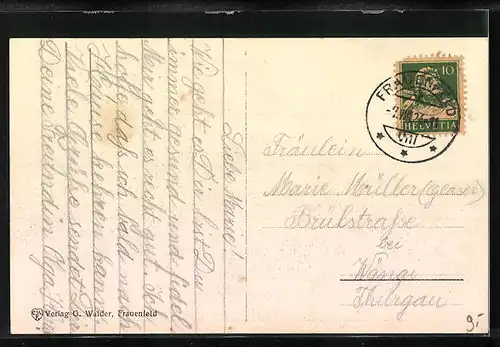 Liebe Marie!
Wie geht es Dir, bist Du
immer gesund und fidel.
Mir geht es nicht gut. Ich
hoffe daß ich bald nach
Hause kehren kann.
Viele Grüße sendet Dir
Deine Freundin Olga
Fräulein
Marie Müller
Brühlstraße
bei
Wängi
Thurgau
10
HELVETIA
FRAUENFELD
VIII
Verlag G. Walder, Frauenfeld
9.-